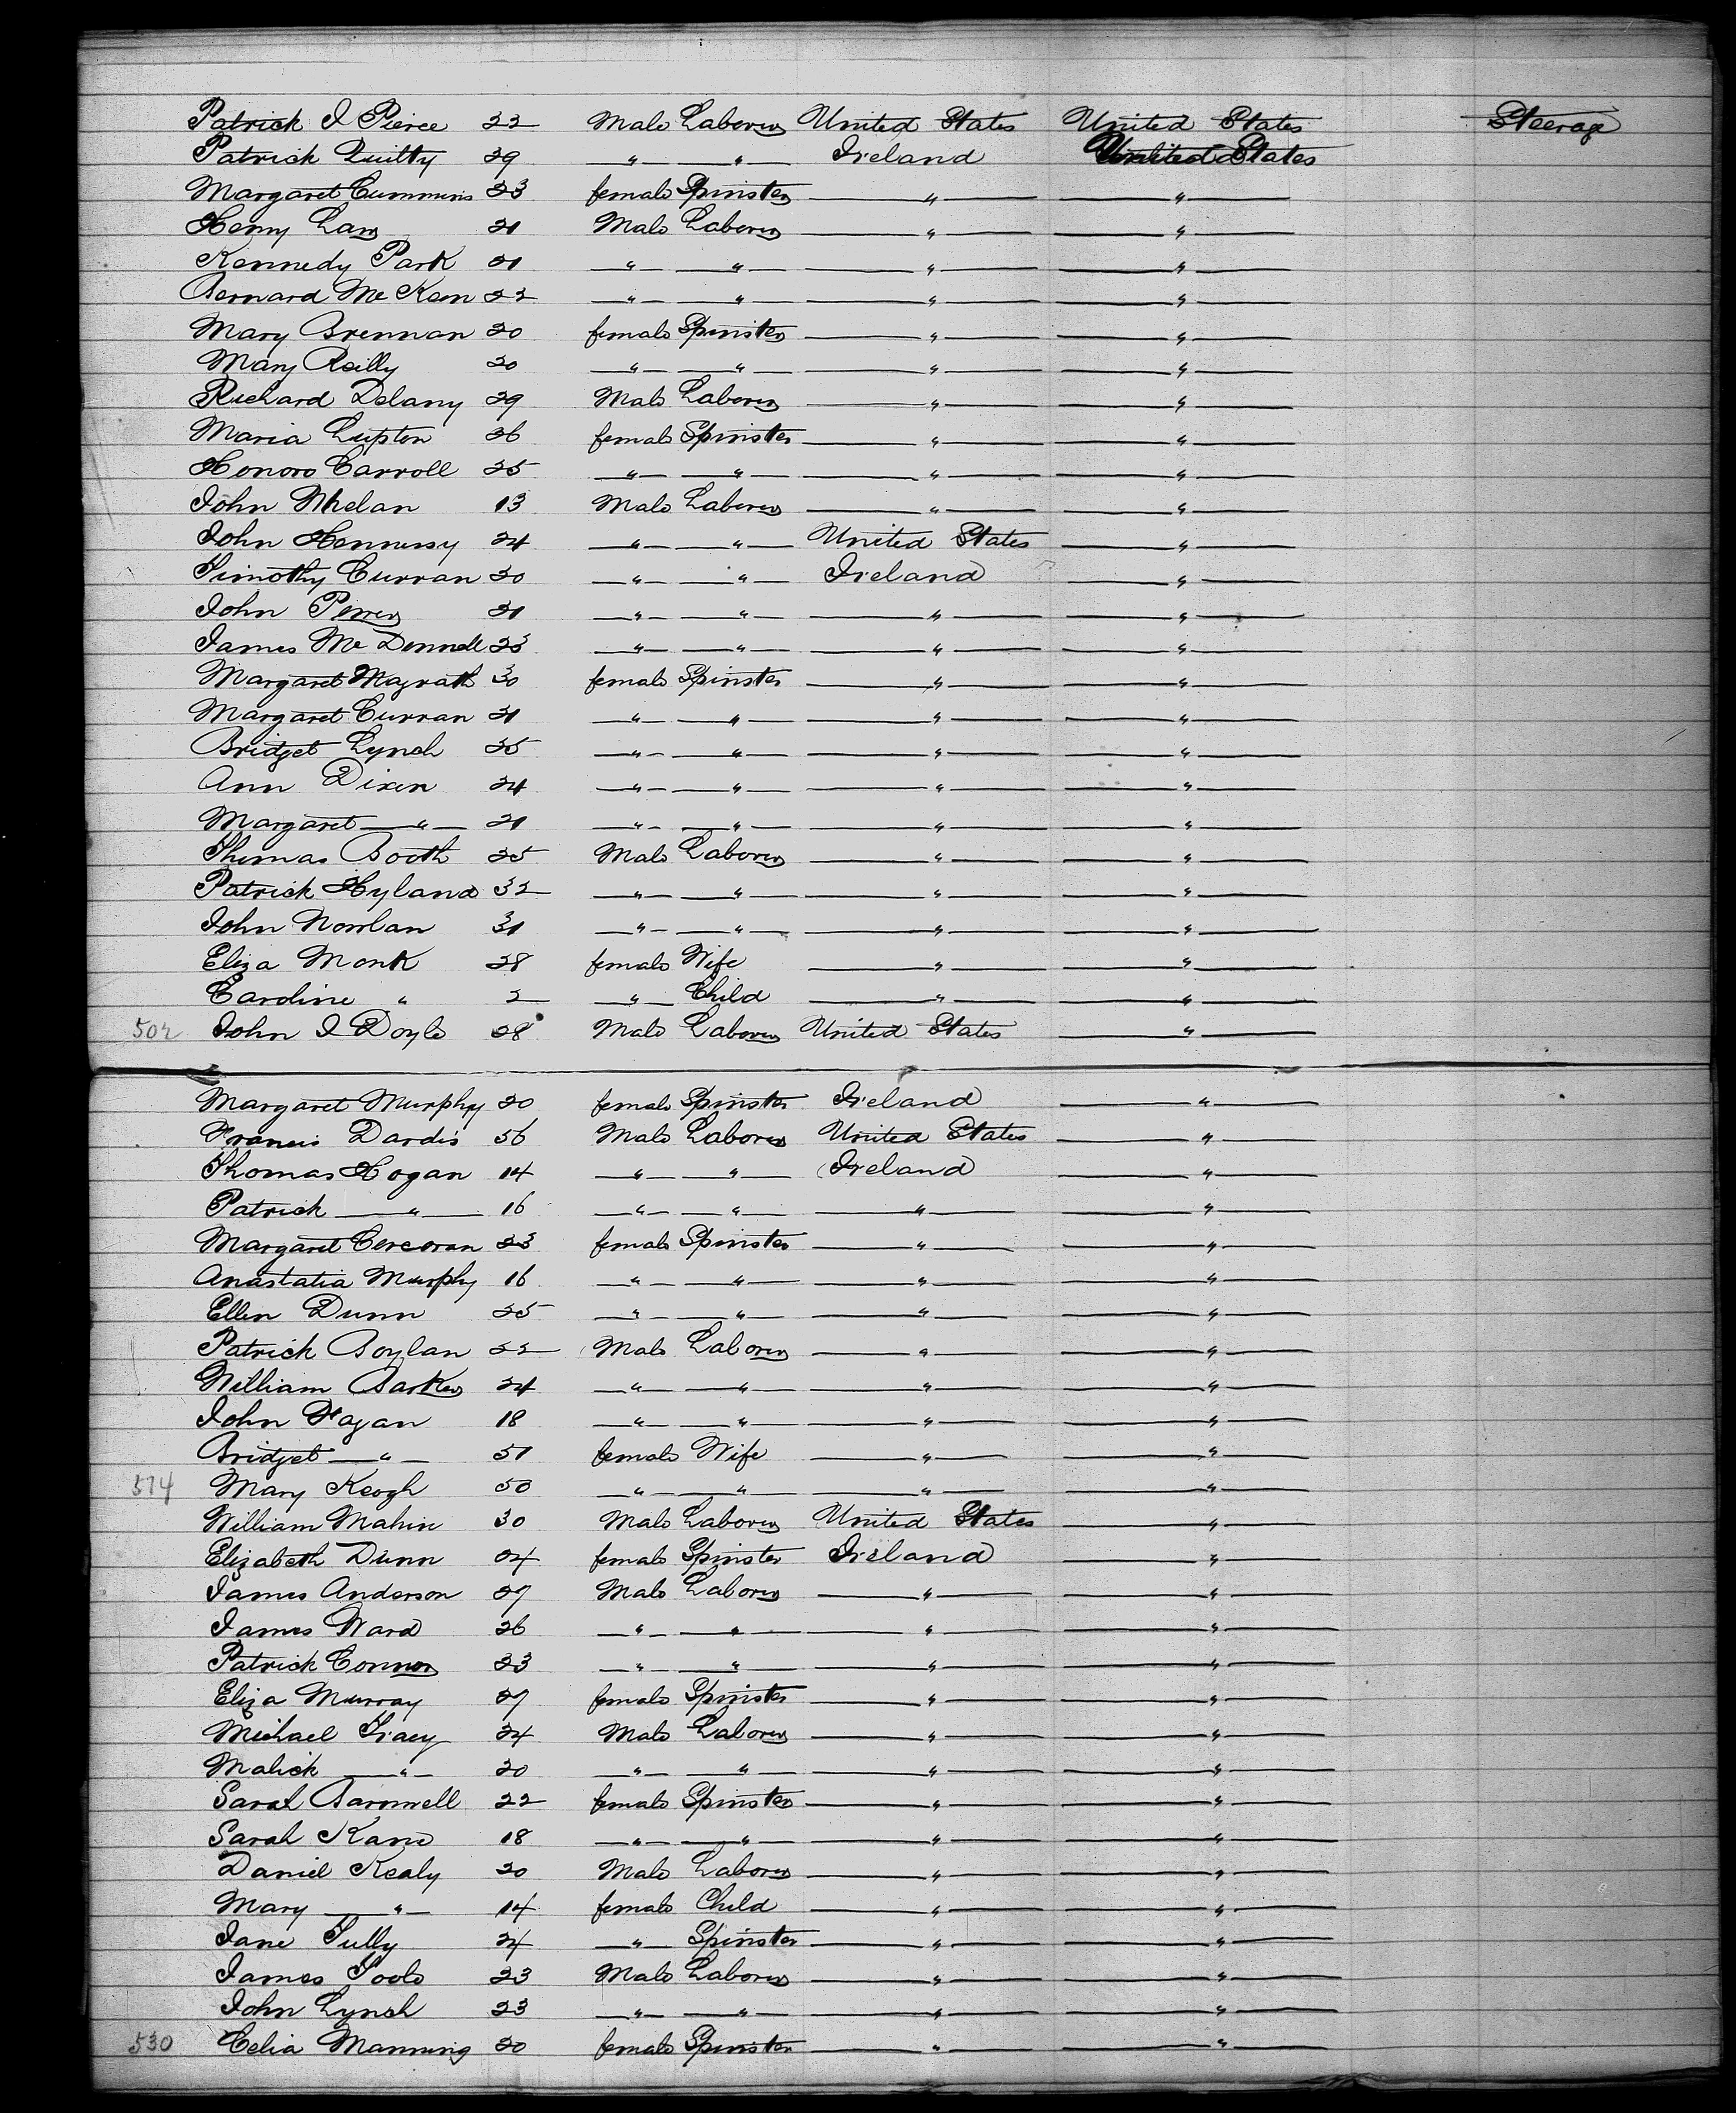 Patrick J Pierce 22 Male Laborer United States United States Steerage
Patrick Quilty 29 " " Ireland United States
Margaret Cummins 23 female Spinster " "
Henry Law 21 Male Laborer " "
Kennedy Park 21 " " " "
Bernard McKeon 22 " " " "
Mary Brennan 20 female Spinster " "
Mary Reilly 20 " " " "
Richard Delany 29 Male Laborer " "
Maria Lupton 26 female Spinster " "
Honoro Carroll 25 " " " "
John Whelan 13 Male Laborer " "
John Hennessy 24 " " United States "
Timothy Curran 20 " " Ireland "
John 21 " " " "
James McDonnell 23 " " " "
Margaret Magrath 30 female Spinster " "
Margaret Curran 21 " " " "
Bridget Lynch 25 " " " "
Ann Dixon 24 " " " "
Margaret " 21 " " " "
Thomas Booth 25 Male Laborer " "
Patrick Hyland 32 " " " "
John Nowlan 31 " " " "
Eliza Monk 28 female Wife " "
Caroline " 2 " Child " "
502 John J Doyle 28 Male Laborer United States "
Margaret Murphy 20 female Spinster Ireland "
Francis Dardis 56 Male Laborer United States "
Thomas Hogan 14 " " Ireland "
Patrick " 16 " " " "
Margaret Corcoran 23 female Spinster " "
Anastatia Murphy 16 " " " "
Ellen Dunn 25 " " " "
Patrick Boylan 22 Male Laborer " "
William Barker 24 " " " "
John Fagan 18 " " " "
Bridget " 51 female Wife " "
514 Mary Keogh 50 " " " "
William Mahin 30 Male Laborer United States "
Elizabeth Dunn 24 female Spinster Ireland "
James Anderson 27 Male Laborer " "
James Ward 26 " " " "
Patrick Connor 23 " " " "
Eliza Murray 27 female Spinster " "
Michael Tracy 24 Male Laborer " "
Malick " 20 " " " "
Sarah Barnwell 22 female Spinster " "
Sarah Kane 18 " " " "
Daniel Kealy 20 Male Laborer " "
Mary " 14 female Child " "
Jane Tully 24 " Spinster " "
James Toole 23 Male Laborer " "
John Lynch 23 " " " "
530 Celia Manning 20 female Spinster " "